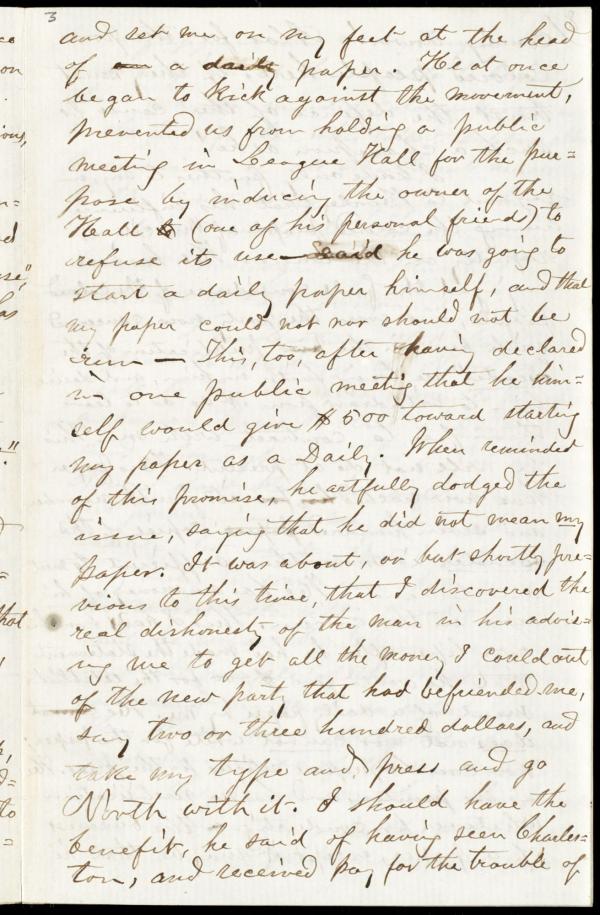 3
and set me on my feet at the head
of an a daily paper. He at once
began to kick against the movement,
prevented us from holding a public
meeting in League Hall for the pur=
pose by inducing the owner of the
Hall to (one of his personal friends) to
refuse its use — said he was going to
start a daily paper himself, and that
my paper could not nor should not be
run — This, too, after having declared
in one public meeting that he him=
self would give $500 toward starting
my paper as a Daily. When reminded
of this promise, he artfully dodged the
issue, saying that he did not mean my
paper. It was about, or but shortly pre=
vious to this time, that I discovered the
real dishonesty of the man in his advis=
ing me to get all the money I could out
of the new party that had befriended me,
say two or three hundred dollars, and
take my type and press and go
North with it. I should have the
benefit, he said of having seen Charles=
ton, and received pay for the trouble of